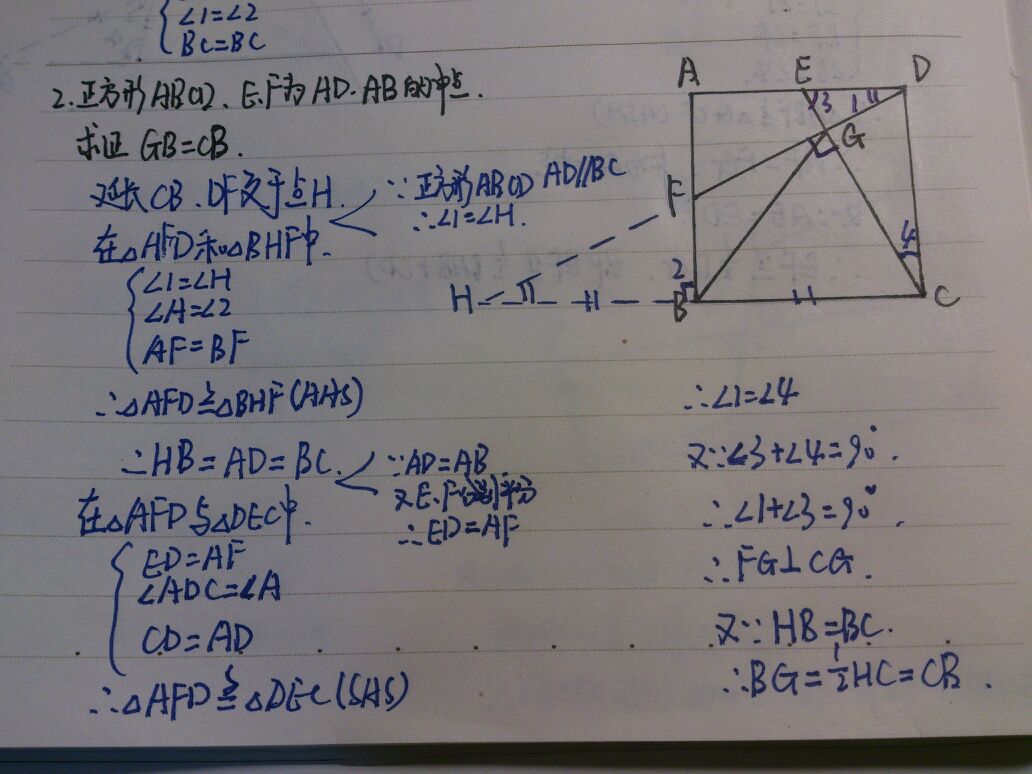 ∠1=∠2
BC=BC
2.正方形ABCD、E.F为AD.AB的中点.
求证 GB=CB.
延长CB、DF交于点H.
∵正方形ABCD AD//BC
∴∠1=∠H.
在△AFD和△BHF中.
∠1=∠H
∠A=∠2
AF=BF
∴△AFD≌△BHF(AAS)
∴HB=AD=BC.
∵AD=AB
又E.F
∴ED=AF
在△AFD与△DEC中.
ED=AF
∠ADC=∠A
CD=AD
∴△AFD≌△DEC(SAS)
A E D
3 1
G
F
4
2
H B C
∴∠1=∠4
又∵∠3+∠4=90°.
∴∠1+∠3=90°.
∴FG⊥CG.
又∵HB=BC.
∴BG=1/2HC=CB.